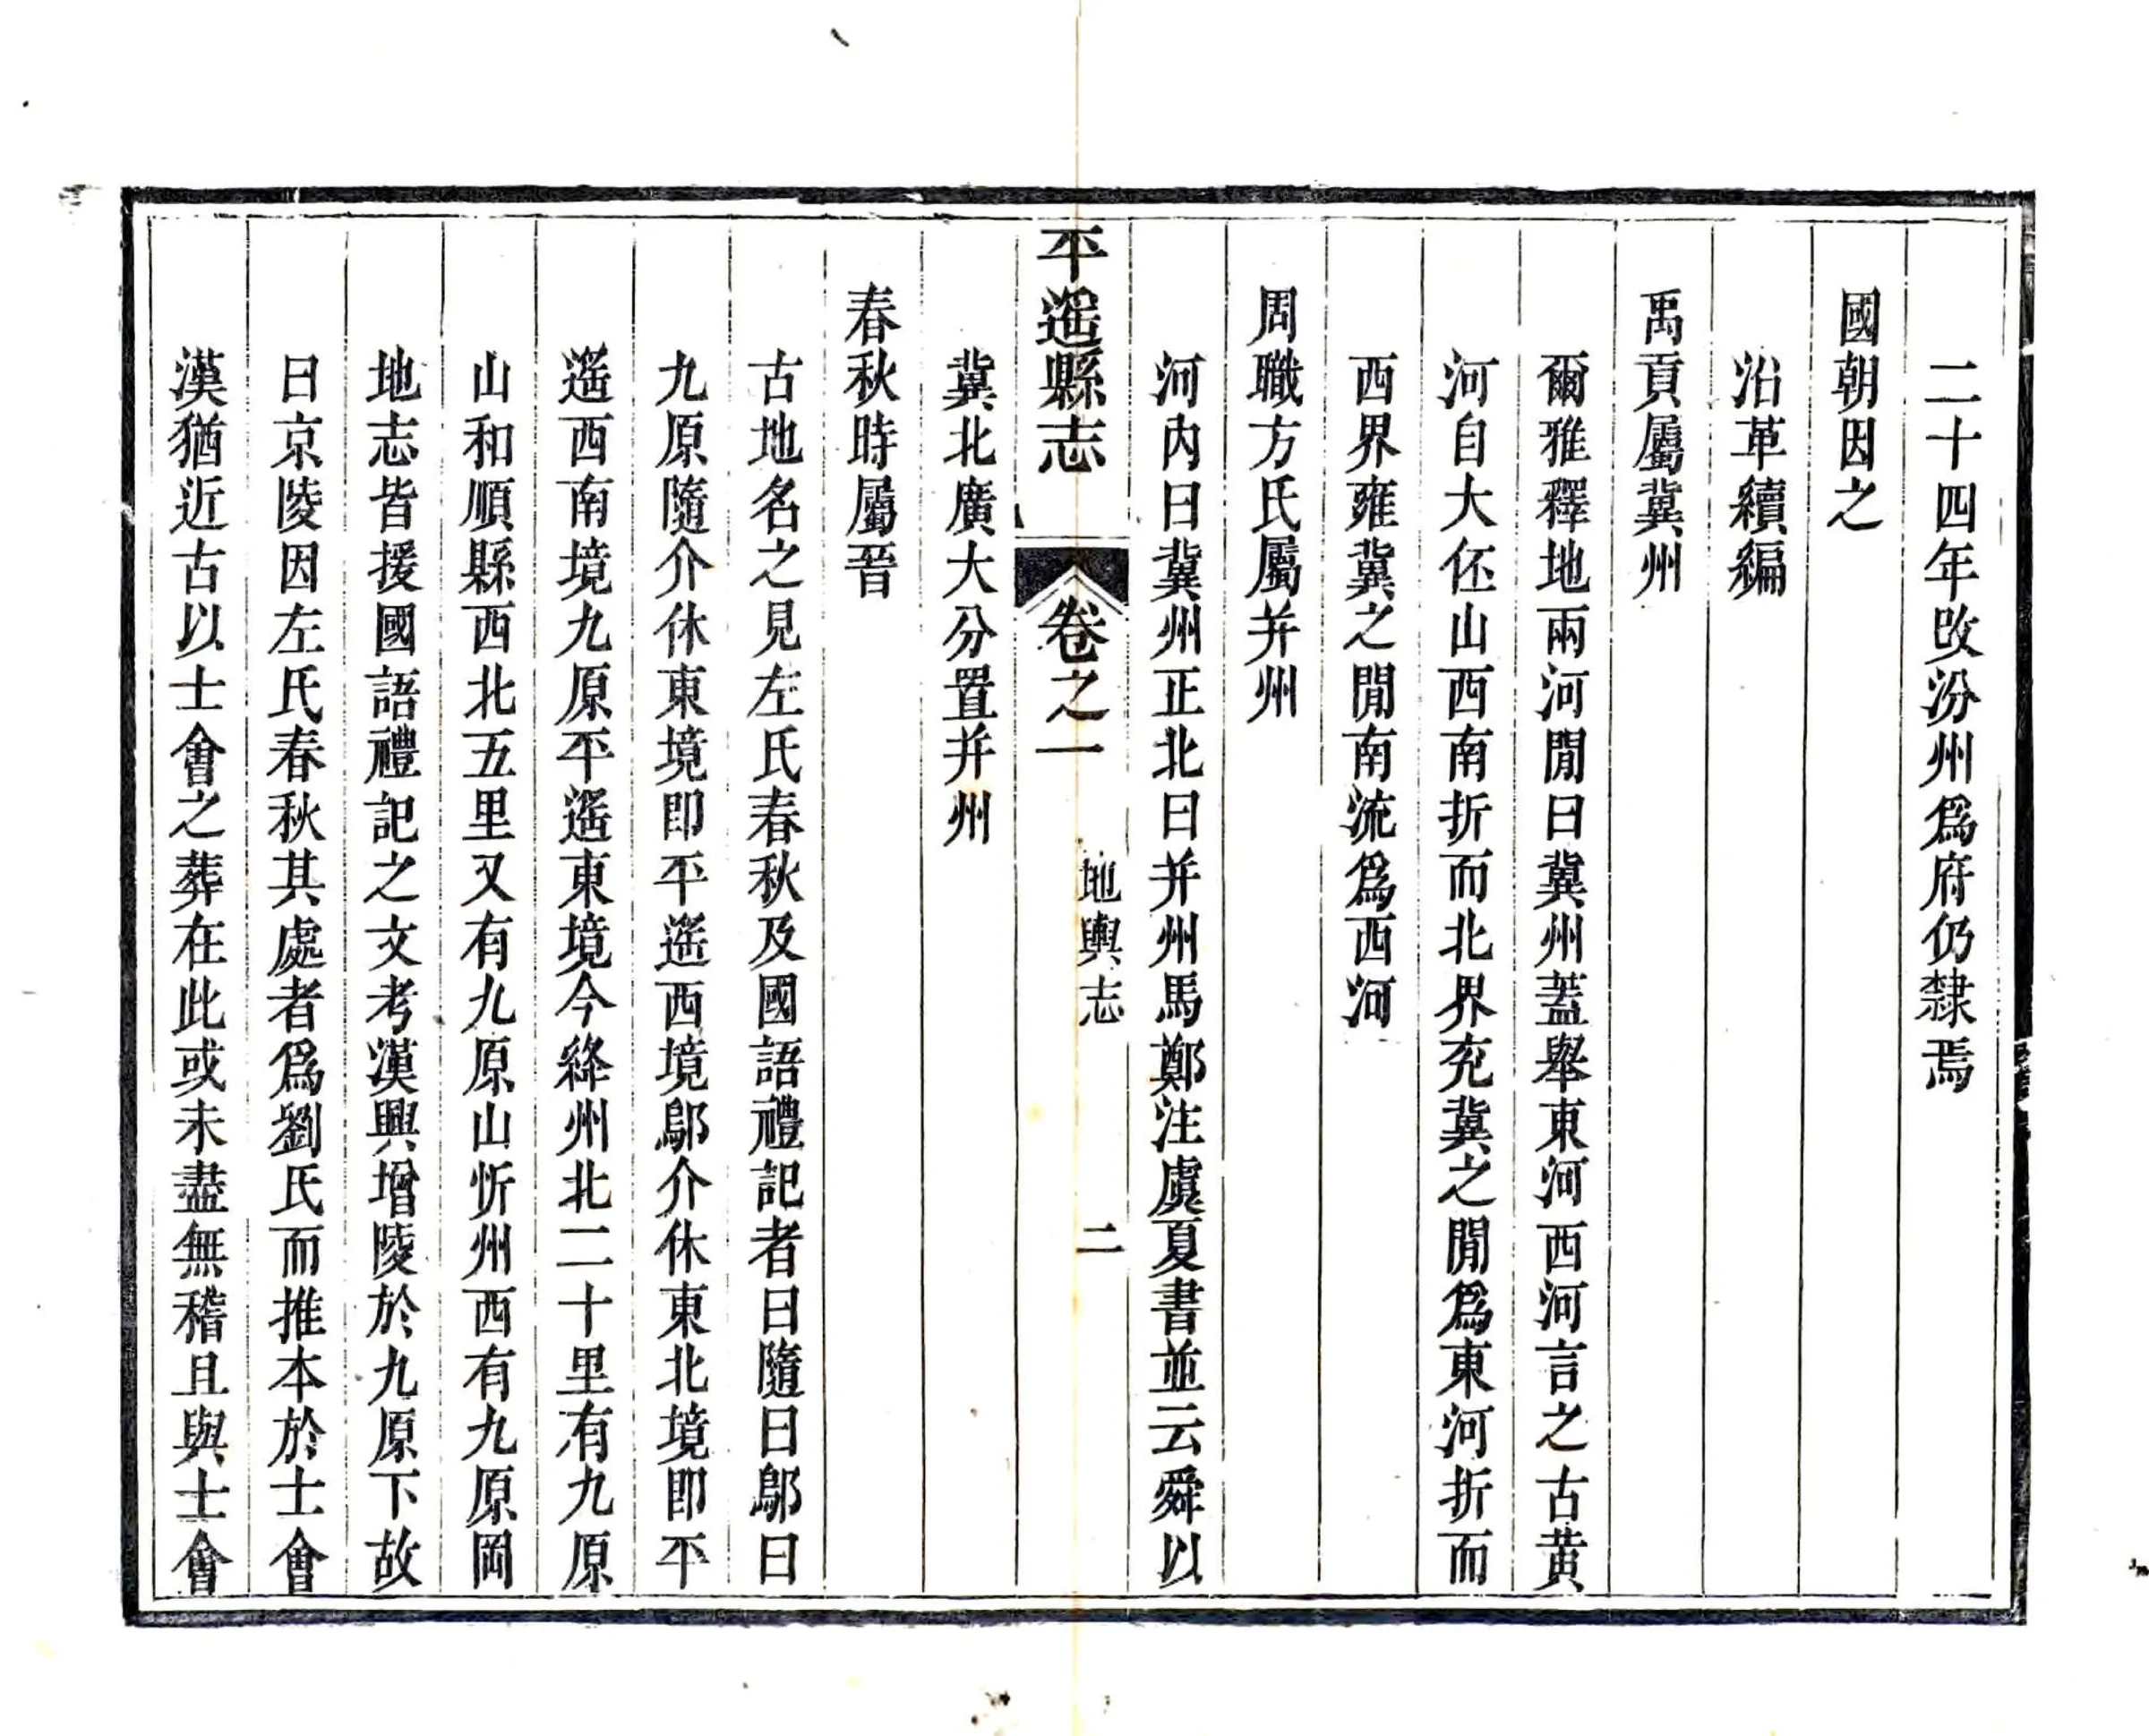 二十四年改汾州爲府仍隸焉
國朝因之
沿革續編
禹貢屬冀州
爾雅釋地兩河閒曰冀州蓋舉東河西河言之古黃
河自大伾山西南折而北界兖冀之閒爲東河折而
西界雍冀之閒南流爲西河
周職方氏屬并州
河內曰冀州正北曰并州馬鄭注虞夏書並云舜以
平遥縣志
卷之一
地輿志
二
冀北廣大分置并州
春秋時屬晉
古地名之見左氏春秋及國語禮記者曰隨曰鄔曰
九原隨介休東境即平遥西境鄔介休東北境即平
遥西南境九原平遥東境今絳州北二十里有九原
山和順縣西北五里又有九原山忻州西有九原岡
地志皆援國語禮記之文考漢興增陵於九原下故
曰京陵因左氏春秋其處者爲劉氏而推本於士會
漢猶近古以士會之葬在此或未盡無稽且與士會